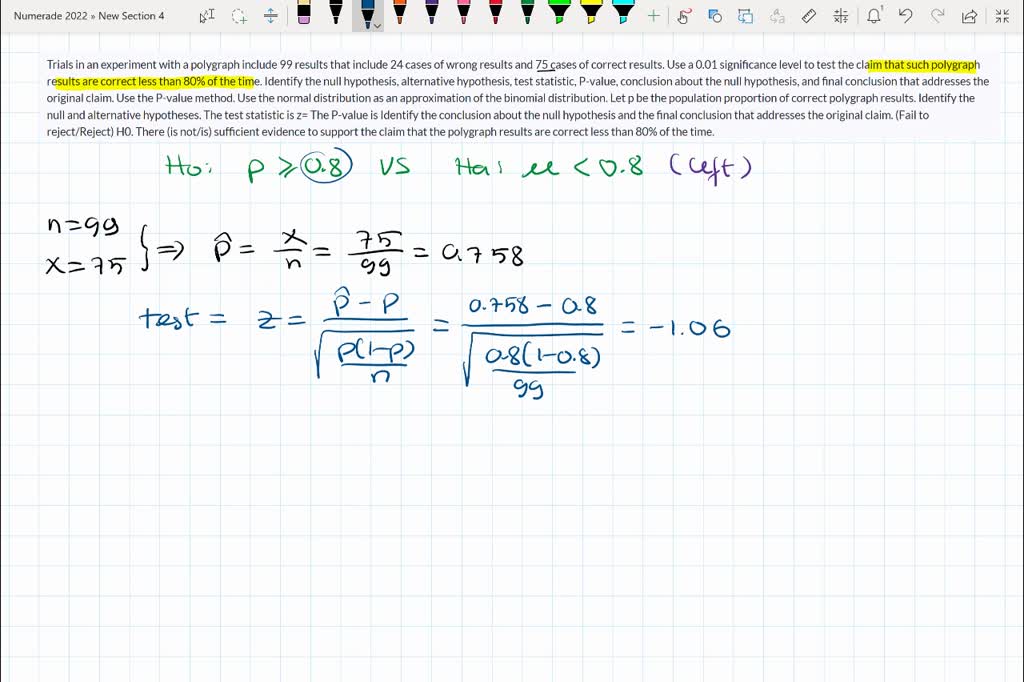 Numerade 2022 » New Section 4
Trials in an experiment with a polygraph include 99 results that include 24 cases of wrong results and 75 cases of correct results. Use a 0.01 significance level to test the claim that such polygraph
results are correct less than 80% of the time. Identify the null hypothesis, alternative hypothesis, test statistic, P-value, conclusion about the null hypothesis, and final conclusion that addresses the
original claim. Use the P-value method. Use the normal distribution as an approximation of the binomial distribution. Let p be the population proportion of correct polygraph results. Identify the
null and alternative hypotheses. The test statistic is z= The P-value is Identify the conclusion about the null hypothesis and the final conclusion that addresses the original claim. (Fail to
reject/Reject) H0. There (is not/is) sufficient evidence to support the claim that the polygraph results are correct less than 80% of the time.
Ho: p ≥ 0.8 vs Ha: μ < 0.8 (left)
n=99
x=75 } ⇒ p̂ = x/n = 75/99 = 0.758
test = z = (p̂ - p)/√(p(1-p)/n) = (0.758 - 0.8)/√(0.8(1-0.8)/99) = -1.06